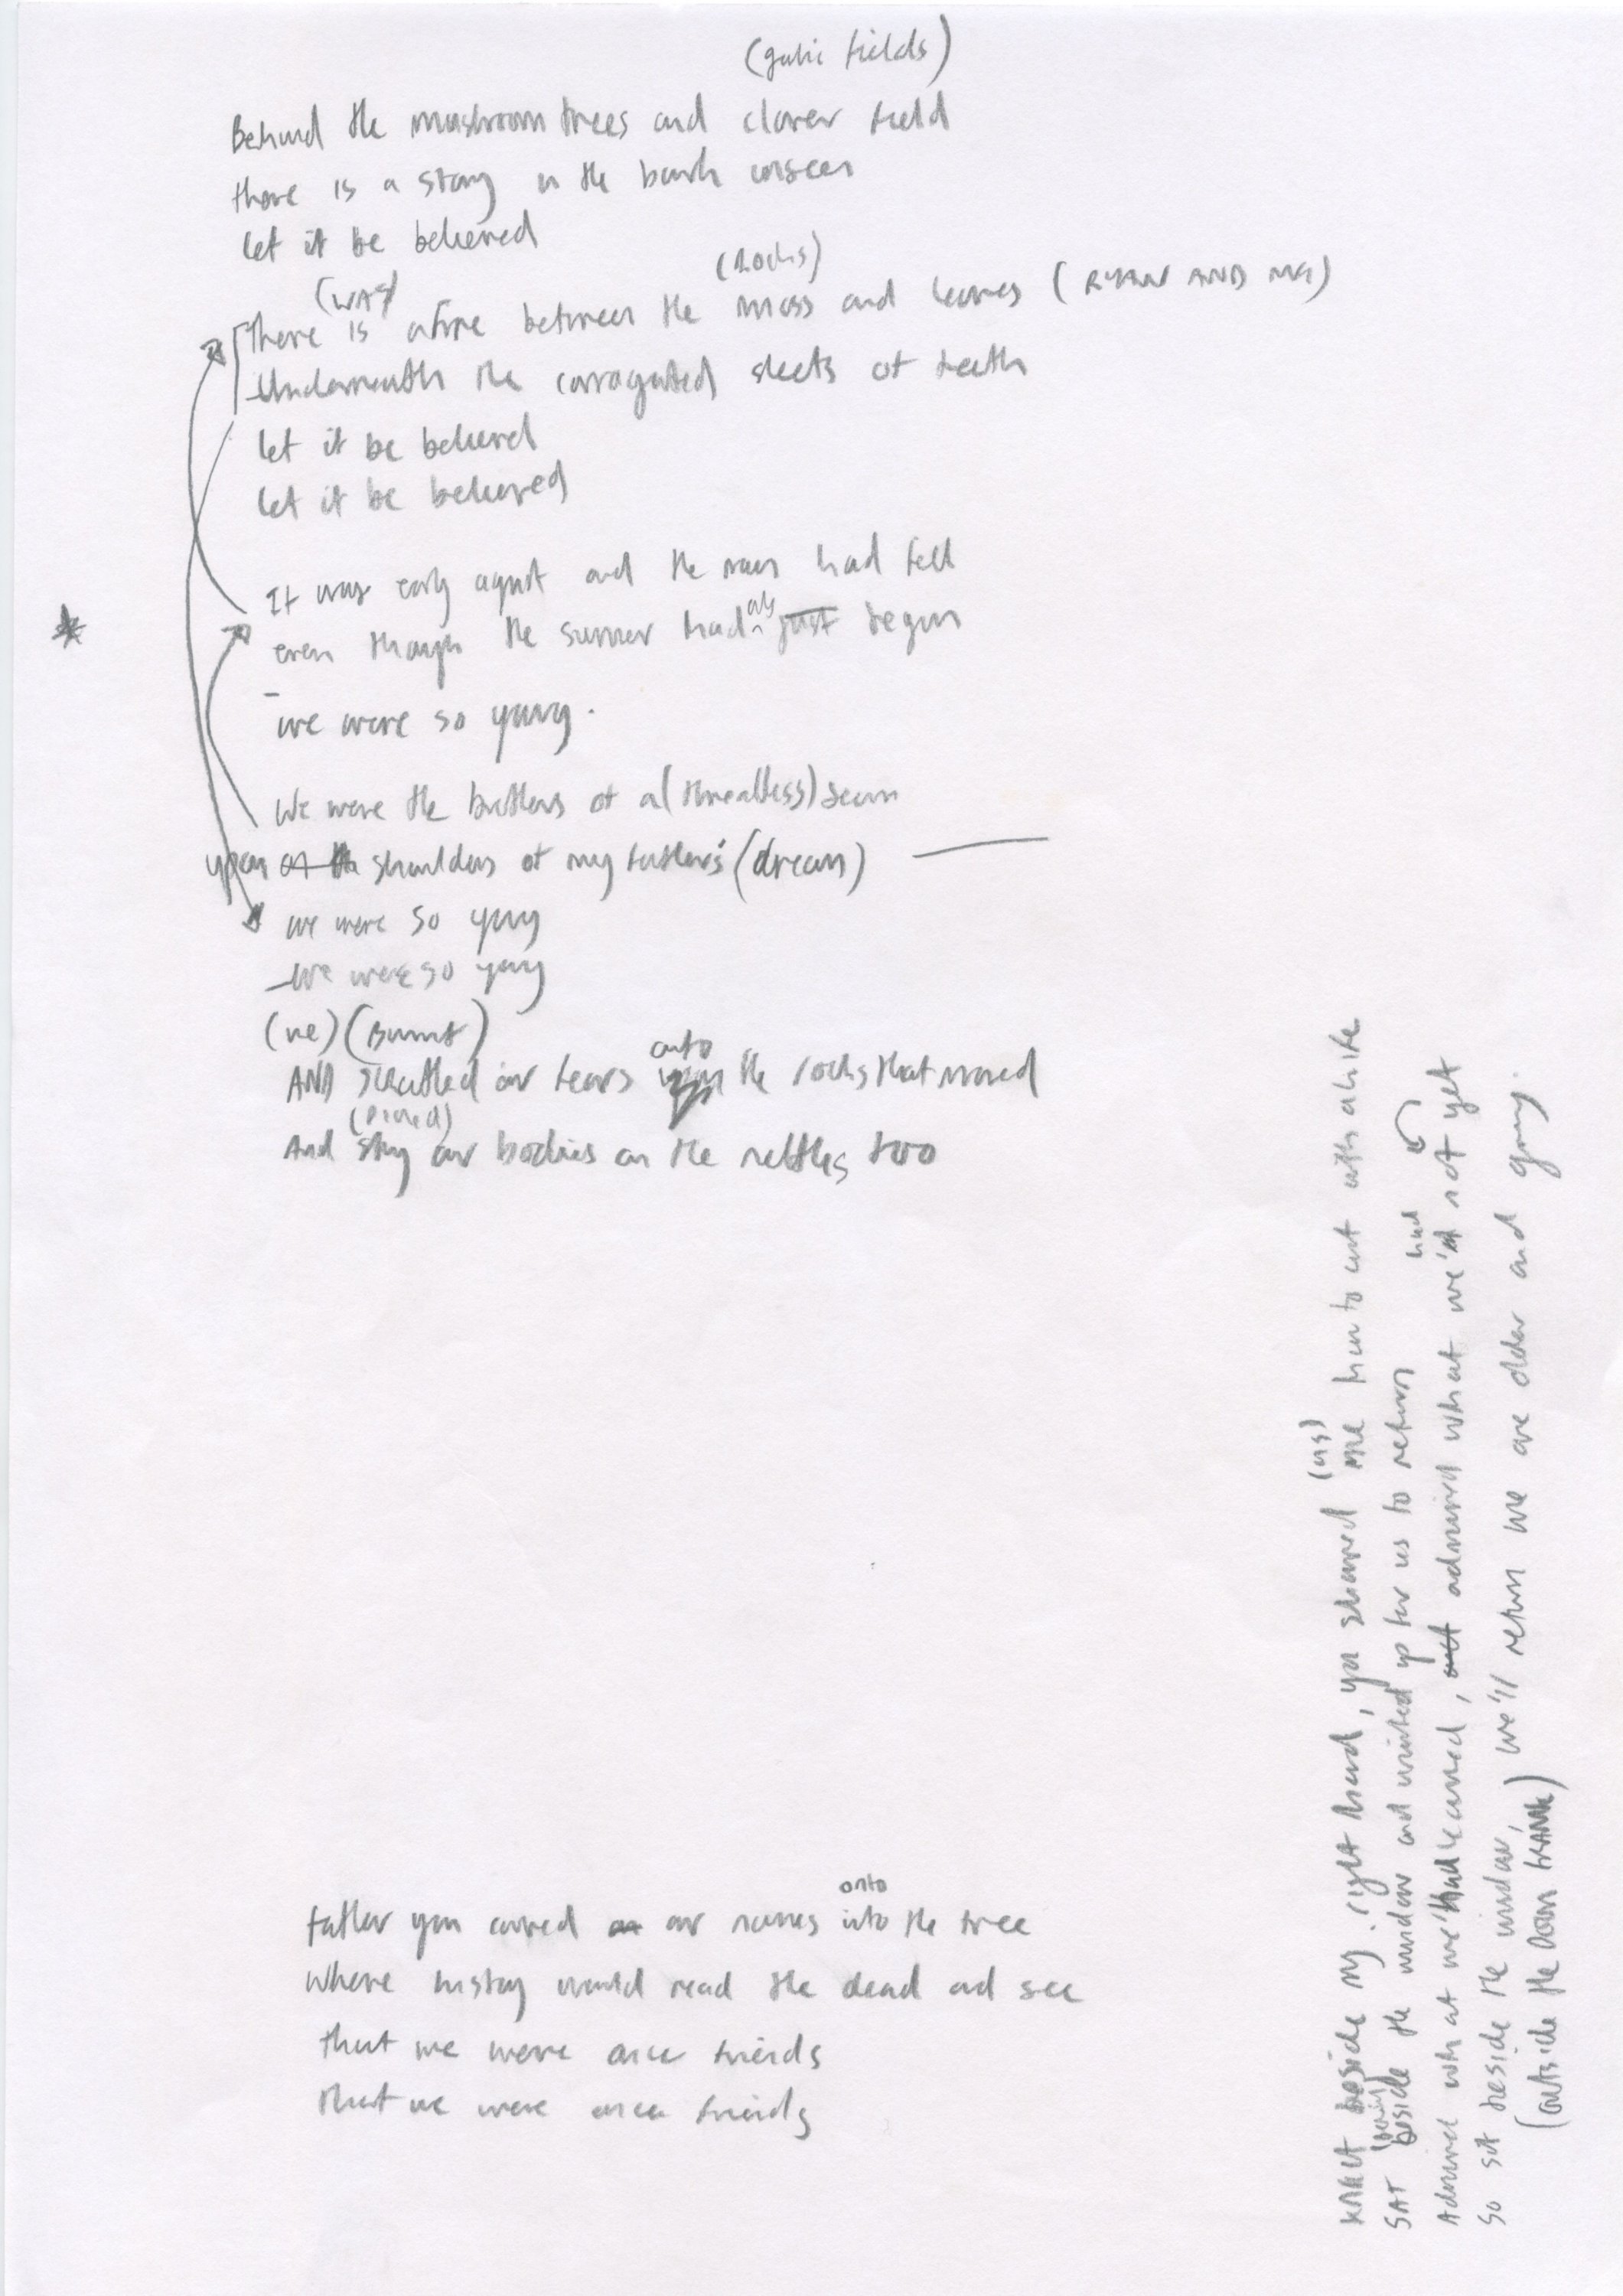 (garlic fields)
Behind the mushroom trees and clover field
there is a story in the bark unseen
let it be believed
(WAS) (Rocks)
There is a fire between the moss and leaves (RYAN AND ME)
Underneath the corrugated sheets of teeth
let it be believed
let it be believed
It was early august and the rain had fell
even though the summer had just begun
we were so young.
We were the brothers of a (threadless) seam
upon on the shoulders of my father's (dream)
we were so young
we were so young
(we) (Burnt)
onto
AND our tears upon the rocks that moved
And our bodies on the nettles too
onto
father you carved our names into the tree
where history would read the dead and see
that we were once friends
that we were once friends
(us)
KNELT beside my right hand, you showed me how to cut with a knife
SAT beside the window and waited up for us to return
had
Admired what we'd had learned, and admired what we'd not yet
So sit beside the window, we'll return we are older and young.
(outside the DOOR FRAME)